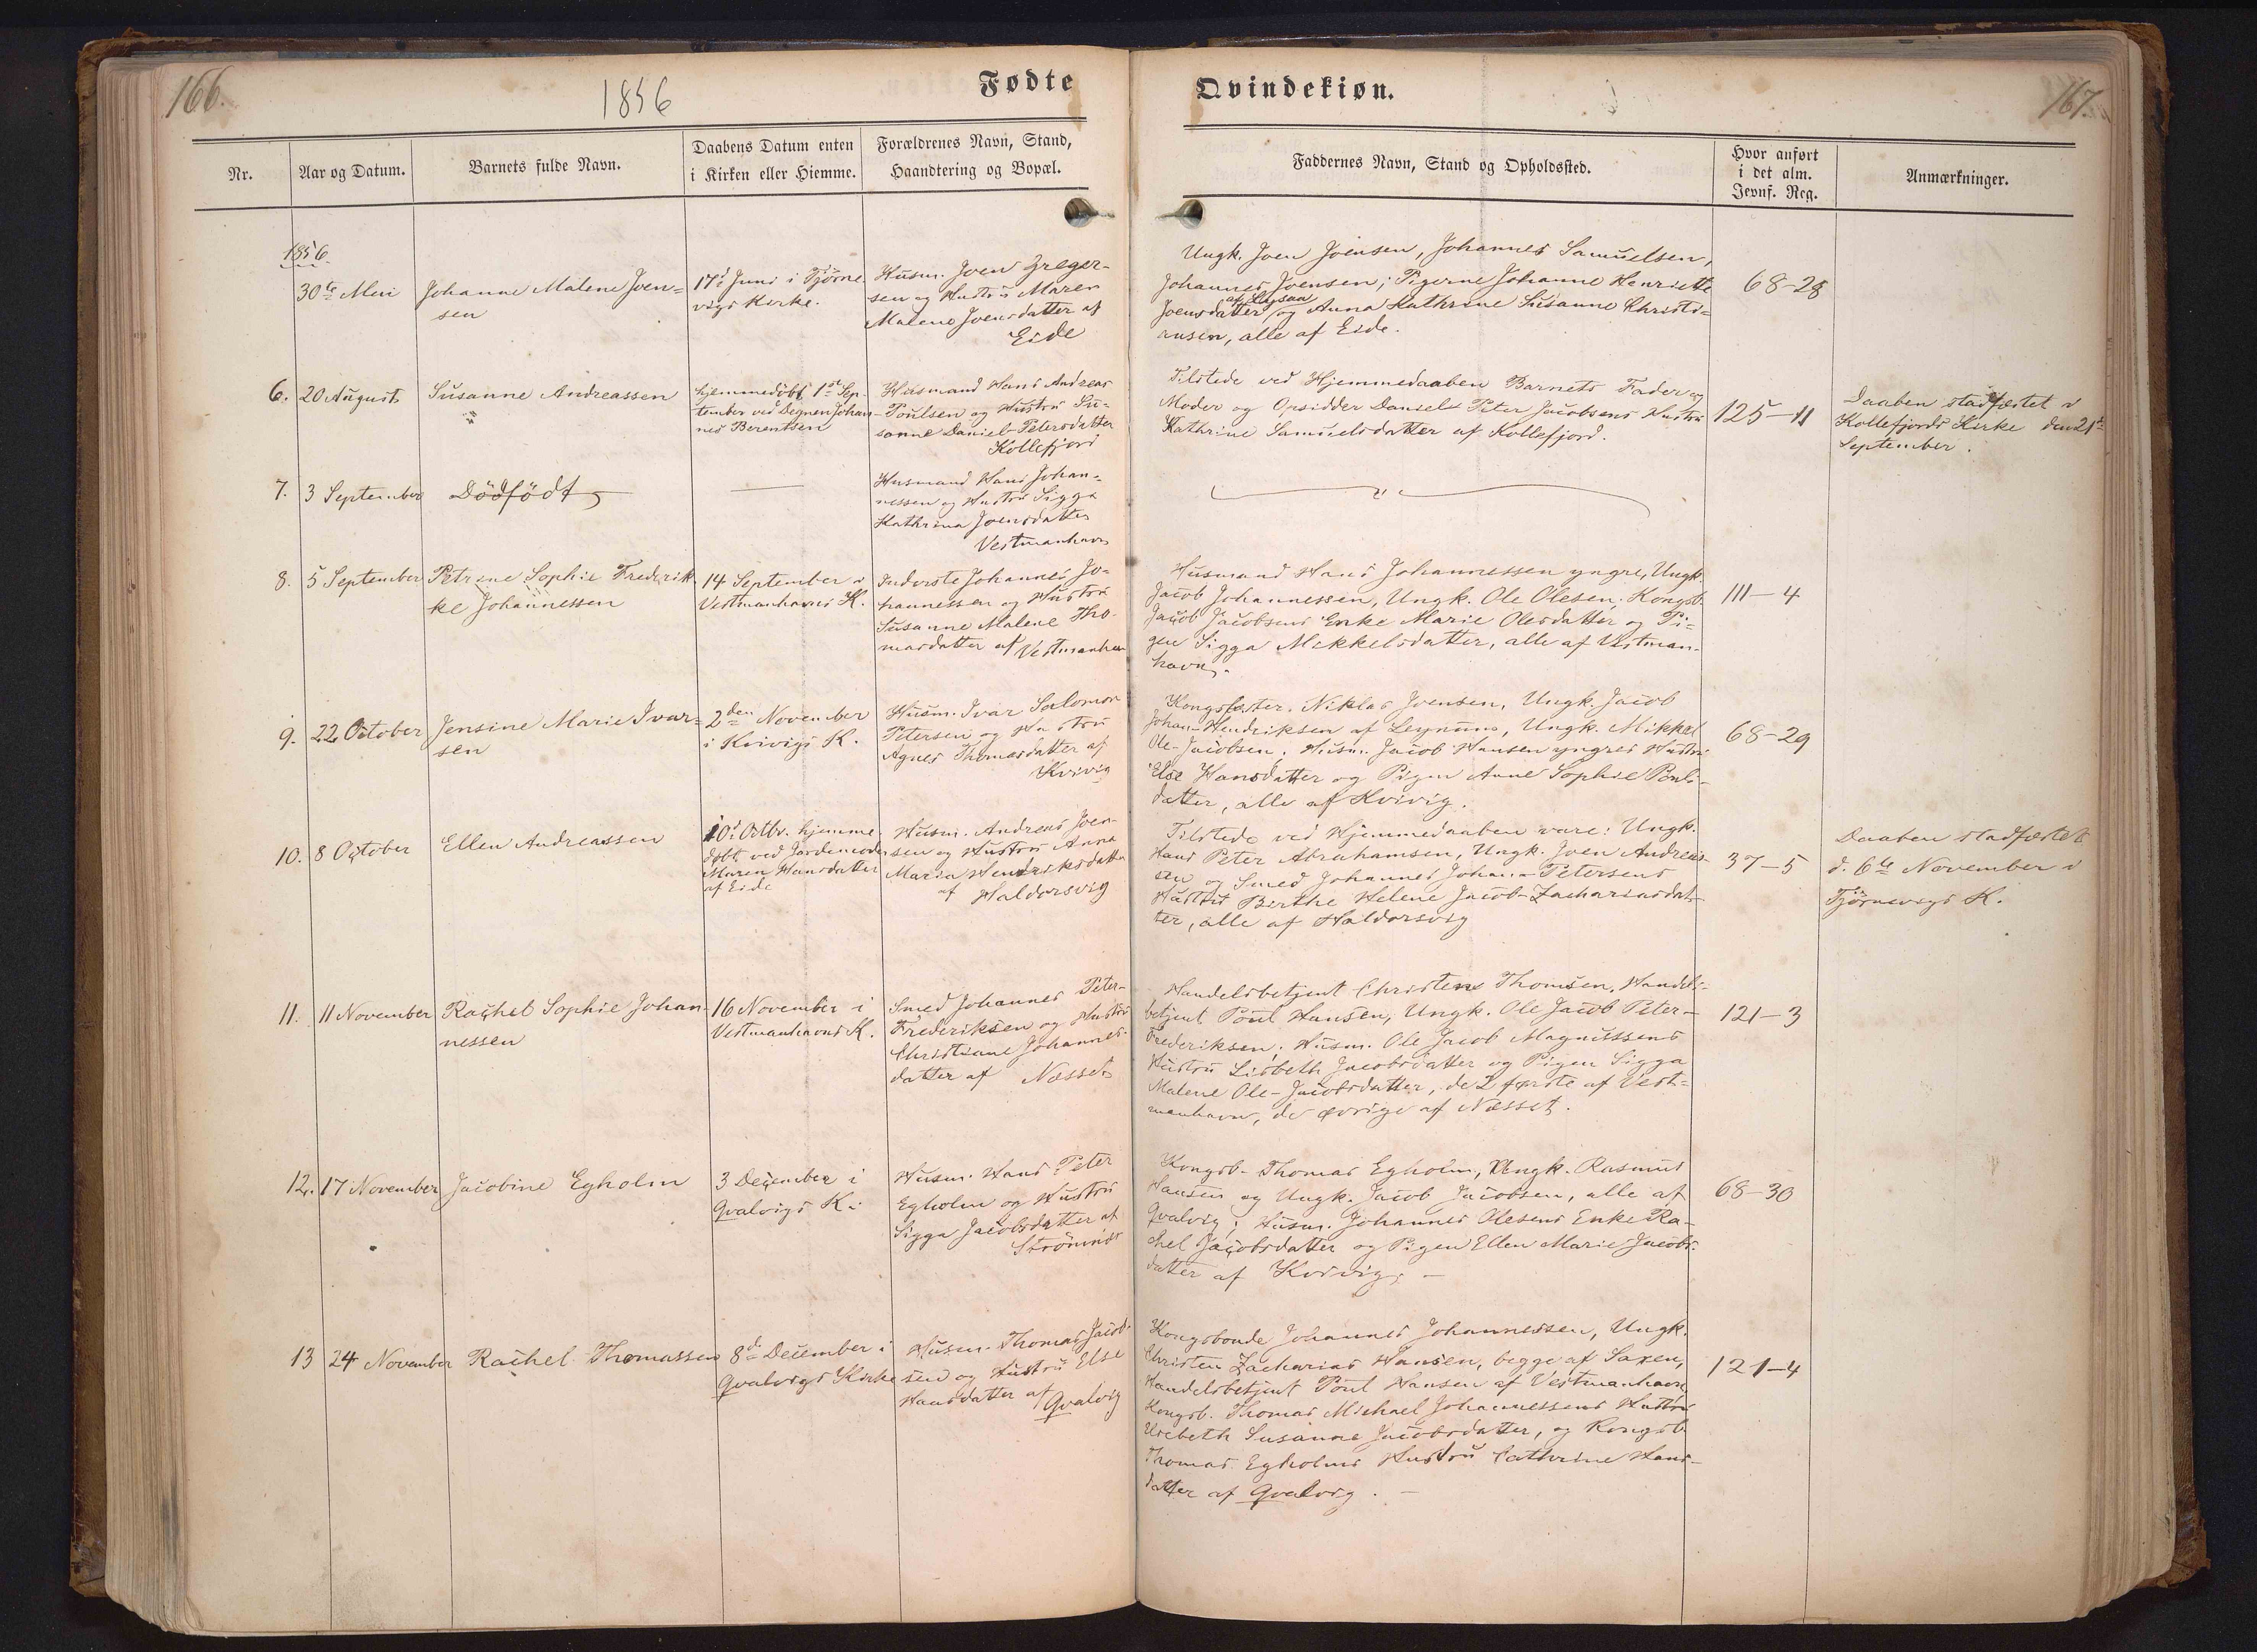 166.
1856
Fødte
Nr.
Aar og Datum.
Barnets fulde Navn.
Daabens Datum enten
i Kirken eller Hiemme.
Forældrenes Navn, Stand,
Haandtering og Bopæl.
1856.
30te Mai
Johanne Malene Joen=
sen
17d Juni i Tjørne
vigs Kirke.
Husm. Joen Greger-
sen og Hustru Maren
Malene Joensdatter af
Eide
6.
20 August
Susanne Andreassen
hjemmedøbt 1ste Sep-
tember ved Degnen Johan-
nes Berentsen
Husmand Hans Andreas
Poulsen og Hustru Su-
sanne Daniel-Petersdatter
Kollefjord
7.
3 September
Dödfödt
Husmand Hans Johan=
nessen og Hustru Sigga
Kathrina Joensdatter
Vestmanhavn
8.
5 September
Petrine Sophie Frederik
ke Johannessen
14 September i
Vestmanhavns K.
Inderste Johannes Jo=
hannessen og Hustru
Susanne Malene Tho-
masdatter af Vestmanhavn
9.
22 October
Jensine Marie Ivar=
sen
2den November
i Kvivigs K.
Husm. Ivar Salomon
Petersen og Hustru
Agnes Thomasdatter af
Kvivig
10.
8 October
Ellen Andreassen
10d Octbr. hjemme
døbt ved Jordemoder
Maren Hansdatter
af Eide
Husm. Andreas Joen-
sen og Hustru Anna
Maria Hendriksdatter
af Haldorsvig
11.
11 November
Rachel Sophie Johan-
nessen
16 November i
Vestmanhavns K.
Smed Johannes Peter-
Frederiksen og Hustru
Christiane Johannes-
datter af Næsset
12.
17 November
Jacobine Egholm
3 December i
Qvalvigs K.
Husm. Hans Peter
Egholm og Hustru
Sigga Jacobsdatter af
Strömnæs
13
24 November
Rachel Thomassen
8de December i
Qvalvigs Kirke
Husm. Thomas Jacob-
sen og Hustru Else
Hansdatter af Qvalvig
Qvindekiøn.
167.
Faddernes Navn, Stand og Opholdssted.
Hvor anført
i det alm.
Jevnf. Reg.
Anmærkninger.
Ungk. Joen Joensen, Johannes Samuelsen,
Johannes Joensen; Pigerne Johanne Henriette
Joensdatter og Anna Kathrine Susanne Christi=
ansen, alle af Eide.
68-28
Tilstede ved Hjemmedaaben Barnets Fader og
Moder og Opsidder Daniel Peter Jacobsens Hustru
Kathrine Samuelsdatter af Kollefjord.
125-11
Daaben stadfæstet i
Kollefjords Kirke den 21de
September.
Husmand Hans Johannessen yngre, Ungk.
Jacob Johannessen, Ungk. Ole Olesen; Kongsb.
Jacob Jacobsens Enke Marie Olesdatter og Pi=
gen Sigga Mikkelsdatter, alle af Vestman-
havn.
111-4
Kongsfæster. Niklas Joensen, Ungk. Jacob
Johan-Hendriksen af Leynum, Ungk. Mikkel
Ole-Jacobsen; Husm. Jacob Hansen yngres Hustru
Else Hansdatter og Pigen Anne Sophie Pouls-
datter, alle af Kvivig.
68-29
Tilstede ved Hjemmedaaben vare: Ungk.
Hans Peter Abrahamsen, Ungk. Joen Andreas-
sen og Smed Johannes Johan-Petersens
Hustru Birthe Helene Jacob-Zachariasdat-
ter, alle af Haldorsvig
37-5
Daaben stadfæstet
d. 6te November i
Tjørnevigs K.
Handelsbetjent Christen Thomsen, Handels-
betjent Poul Hansen, Ungk. Ole Jacob Peter-
Frederiksen; Husm. Ole Jacob Magnussens
Hustru Lisbeth Jacobsdatter og Pigen Sigga
Malene Ole-Jacobsdatter, de 2 første af Vest=
manhavn, de øvrige af Næsset.
121-3
Kongsb. Thomas Egholm, Ungk. Rasmus
Hansen og Ungk. Jacob Jacobsen, alle af
Qvalvig; Husm. Johannes Olesens Enke Ra-
chel Jacobsdatter og Pigen Ellen Marie Jacobs-
datter af Kvivig.
68-30
Kongsbonde Johannes Johannessen, Ungk.
Christen Zacharias Hansen, begge af Saxen,
Handelsbetjent Poul Hansen af Vestmanhavn,
Kongsb. Thomas Michael Johannessens Hustru
Susanne Jacobsdatter, og Kongsb.
Thomas Egholms Hustru Cathrine Hans-
datter af Qvalvig.
121-4